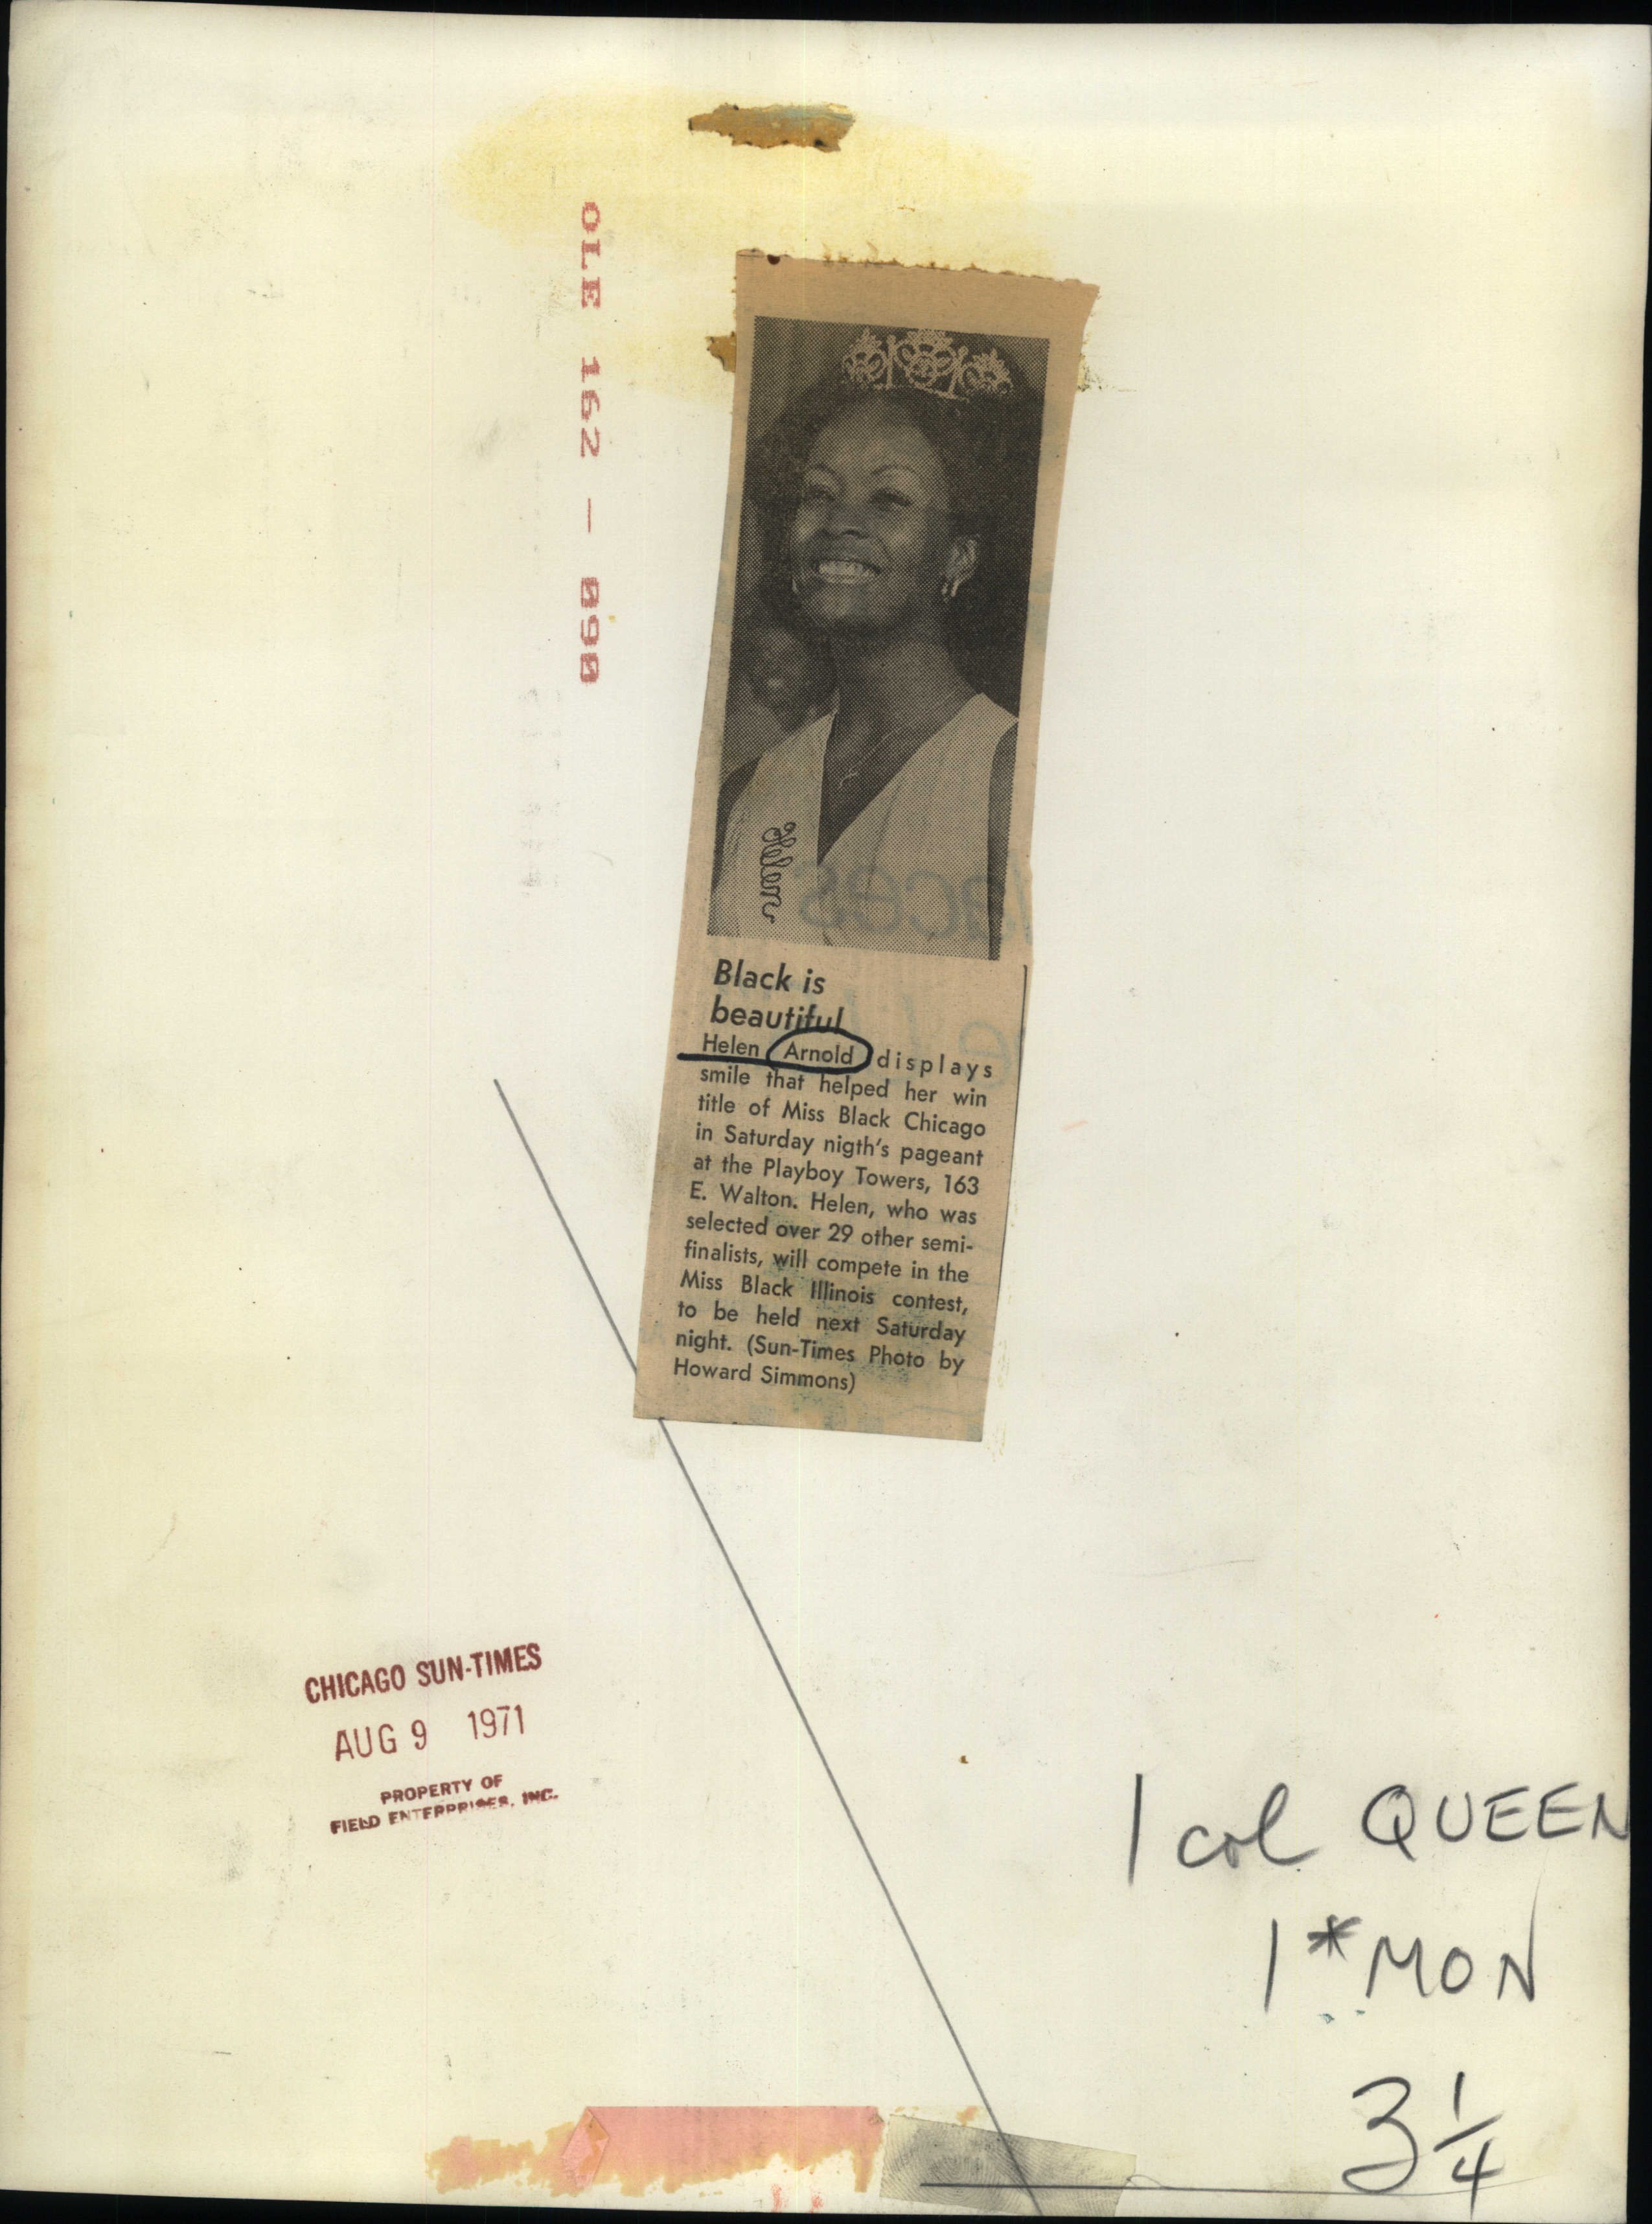 OLE 162 - 090
Helen
Black is
beautiful
Helen Arnold displays
smile that helped her win
title of Miss Black Chicago
in Saturday nigth's pageant
at the Playboy Towers, 163
E. Walton. Helen, who was
selected over 29 other semi-
finalists, will compete in the
Miss Black Illinois contest,
to be held next Saturday
night. (Sun-Times Photo by
Howard Simmons)
CHICAGO SUN-TIMES
AUG 9 1971
PROPERTY OF
FIELD ENTERPRISES, INC.
1 col QUEEN
1* MON
3 1/4